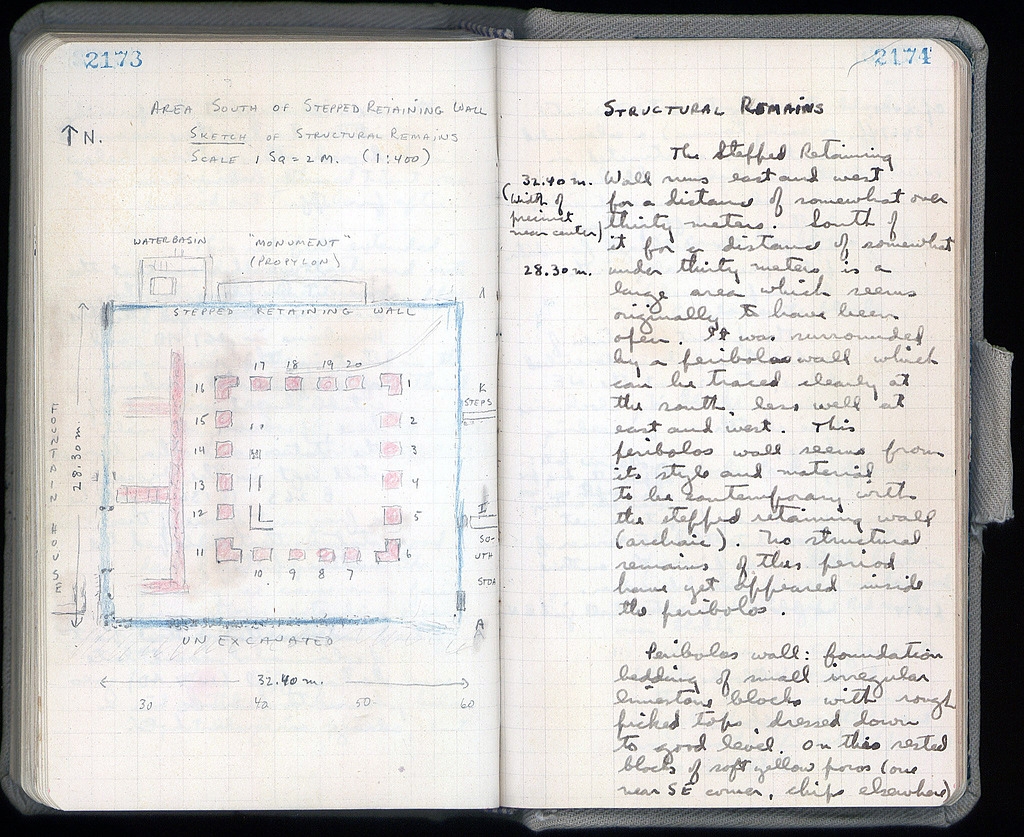 2173
AREA SOUTH OF STEPPED RETAINING WALL
N.
SKETCH OF STRUCTURAL REMAINS
SCALE 1 SQ = 2 M. (1:400)
WATERBASIN
"MONUMENT"
(PROPYLON)
STEPPED RETAINING WALL
17 18 19 20
16 1
K
STEPS
15 2
14 3
13 4
12 5
11 6
10 9 8 7
FOUNTAIN HOUSE
28.30 m.
SO-
UTH
STOA
A
UNEXCAVATED
32.40 m.
30 40 50 60
2174
STRUCTURAL REMAINS
The Stepped Retaining
32.40 m. Wall runs east and west
(Width of for a distance of somewhat over
precinct thirty meters. South of
near center) it for a distance of somewhat
28.30 m. under thirty meters is a
large area which seems
originally to have been
open. It was surrounded
by a peribolos wall which
can be traced clearly at
the south, less well at
east and west. This
peribolos wall seems from
its style and material
to be contemporary with
the stepped retaining wall
(archaic). No structural
remains of this period
have yet appeared inside
the peribolos.
Peribolos wall: foundation
bedding of small irregular
limestone blocks with rough
picked tops, dressed down
to good level. On this rested
blocks of soft yellow poros (one
near SE corner, chips elsewhere)